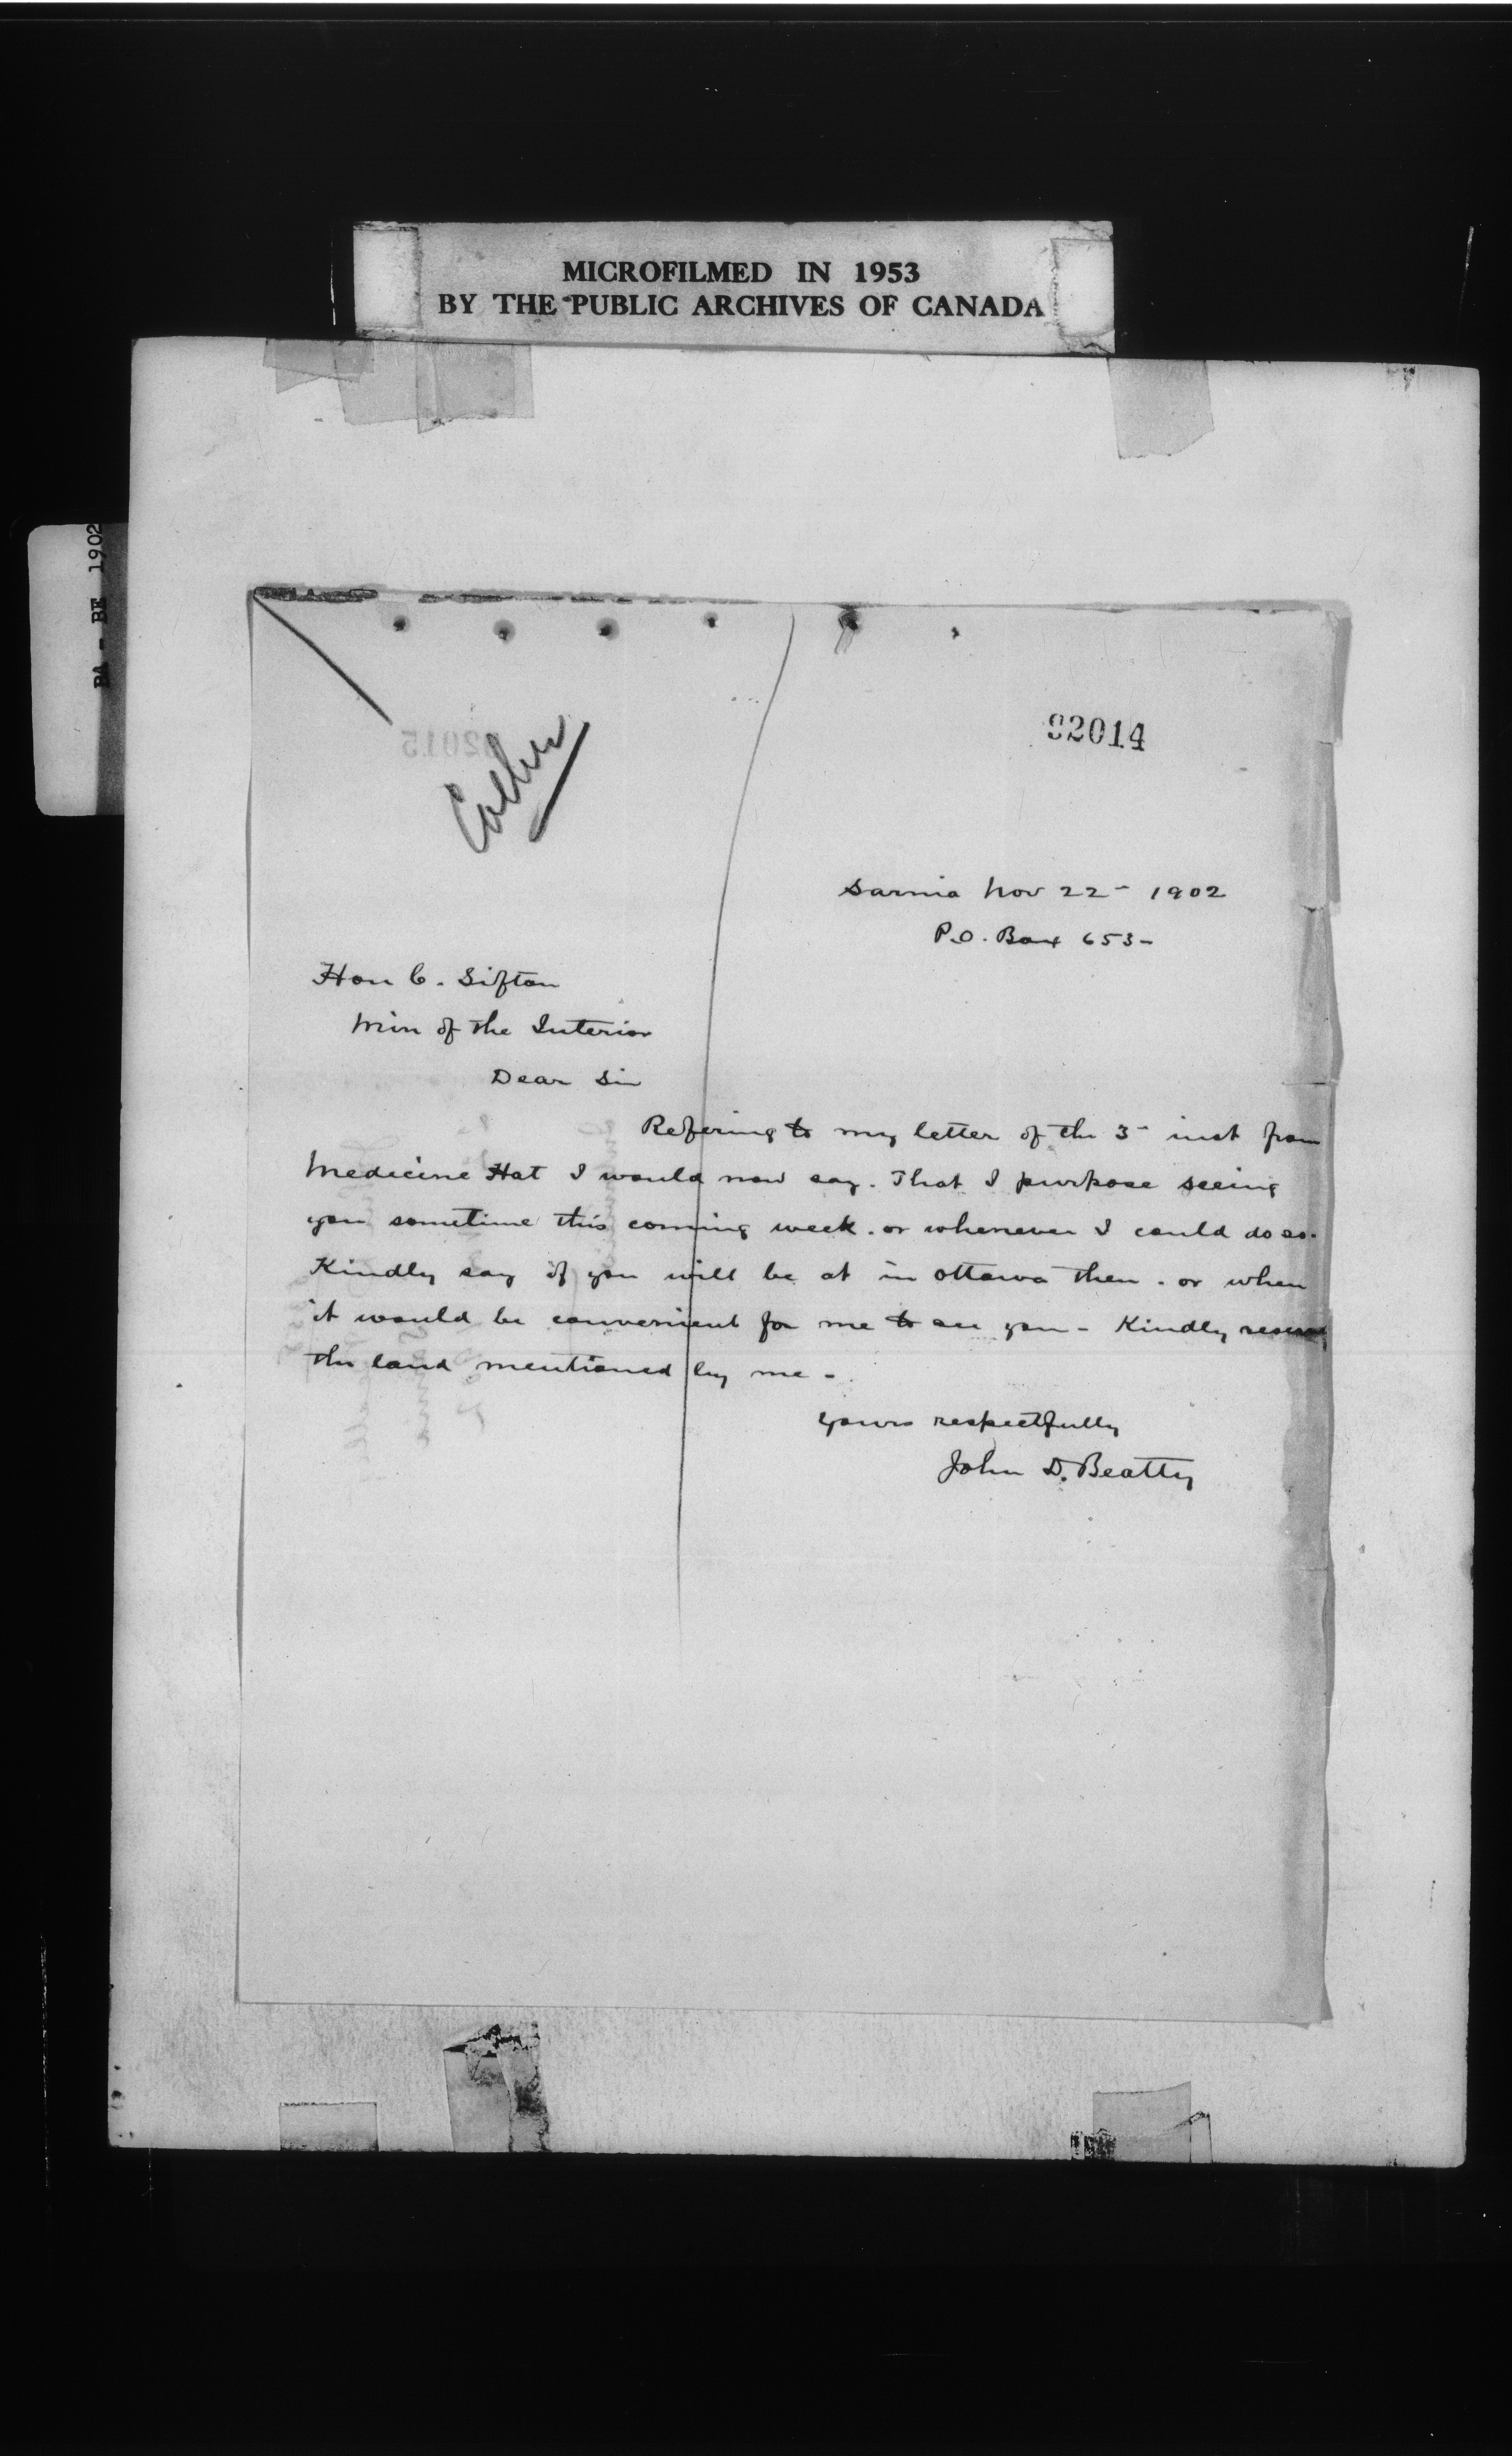 MICROFILMED IN 1953
BY THE PUBLIC ARCHIVES OF CANADA
BA - BE 1902
92014
82015
Sarnia Nov 22 - 1902
P.O. Box 653 -
Hon C. Sifton
Min of the Interior
Dear Sir
Refering to my letter of the 3 - inst from
Medicine Hat I would now say. That I purpose seeing
you sometime this coming week. or whenever I could do so.
Kindly say if you will be at in Ottawa then. or when
it would be convenient for me to see you - Kindly reserve
the land mentioned by me -
Yours respectfully
John D. Beatty